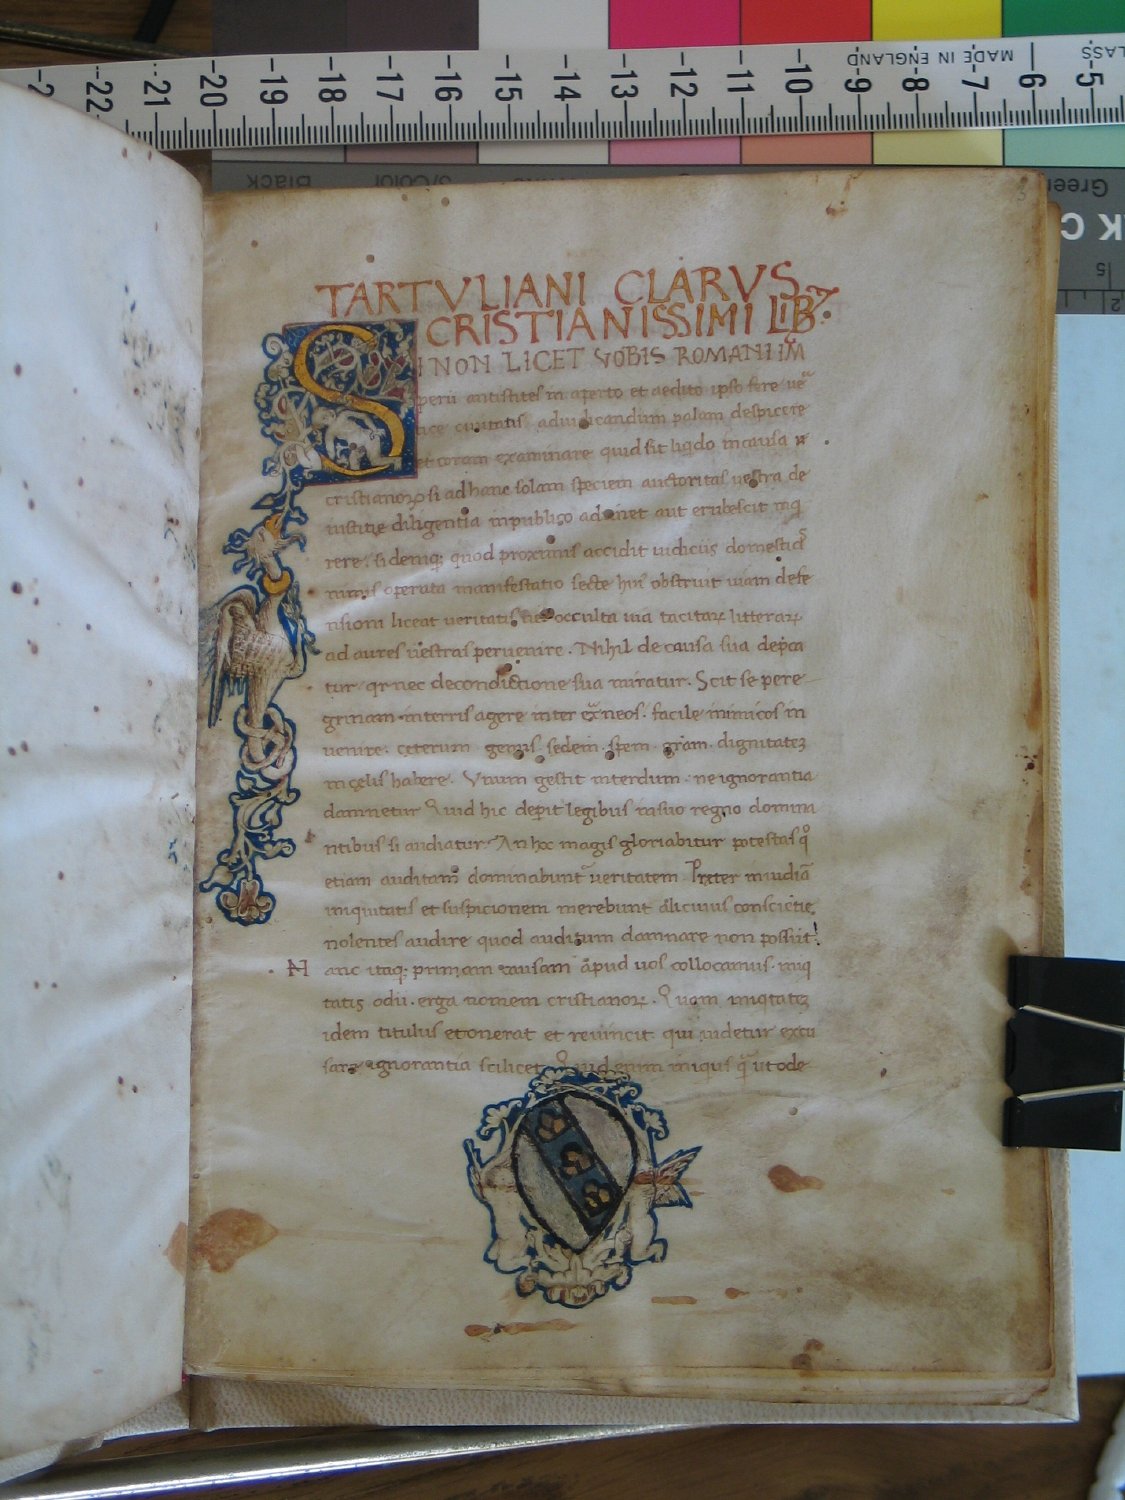 MADE IN ENGLAND
22 21 20 19 18 17 16 15 14 13 12 11 10 9 8 7 6 5
Black
TARTVLIANI CLARVS
CRISTIANISSIMI LIB
SI NON LICET VOBIS ROMANI IM
perii antistites in aperto et aedito ipso fere ue
tice ciuitatis adiudicandum palam despicere
et coram examinare quid sit liqdo in causa
cristianoꝝ si ad hanc solam speciem auctoritas uestra de
iustitie diligentia in publico aut erubescit inq
rere. si deniq; quod proximis accidit iudiciis domestic
nimis operata manifestatio secte hui obstruit uiam defe
nsioni liceat ueritati occulta uia tacitaꝝ litteraꝝ
ad aures uestras peruenire. Nihil de causa sua depca
tur. qr nec de condictione sua miratur. Scit se pere
grinam interris agere inter exneos. facile inimicos in
uenire. ceterum genus. sedem. spem. gram. dignitatez
in celis habere. Vnum gestit interdum. ne ignorantia
damnetur Quid hic depit legibus in suo regno domina
ntibus si audiatur. An hoc magis gloriabitur potestas qo
etiam auditam dominabunt ueritatem Preter inuidiā
iniquitatis et suspicionem merebunt alicuius consciētie
nolentes audire quod auditum damnare non possūt
Hanc itaq; primam causam apud uos collocamus. iniq
tatis odii. erga nomen cristianoꝝ. Quam iniqtatez
idem titulus et onerat et reuincit qui uidetur excu
sare ignorantia scilicet Quid enim iniqus q ut ode